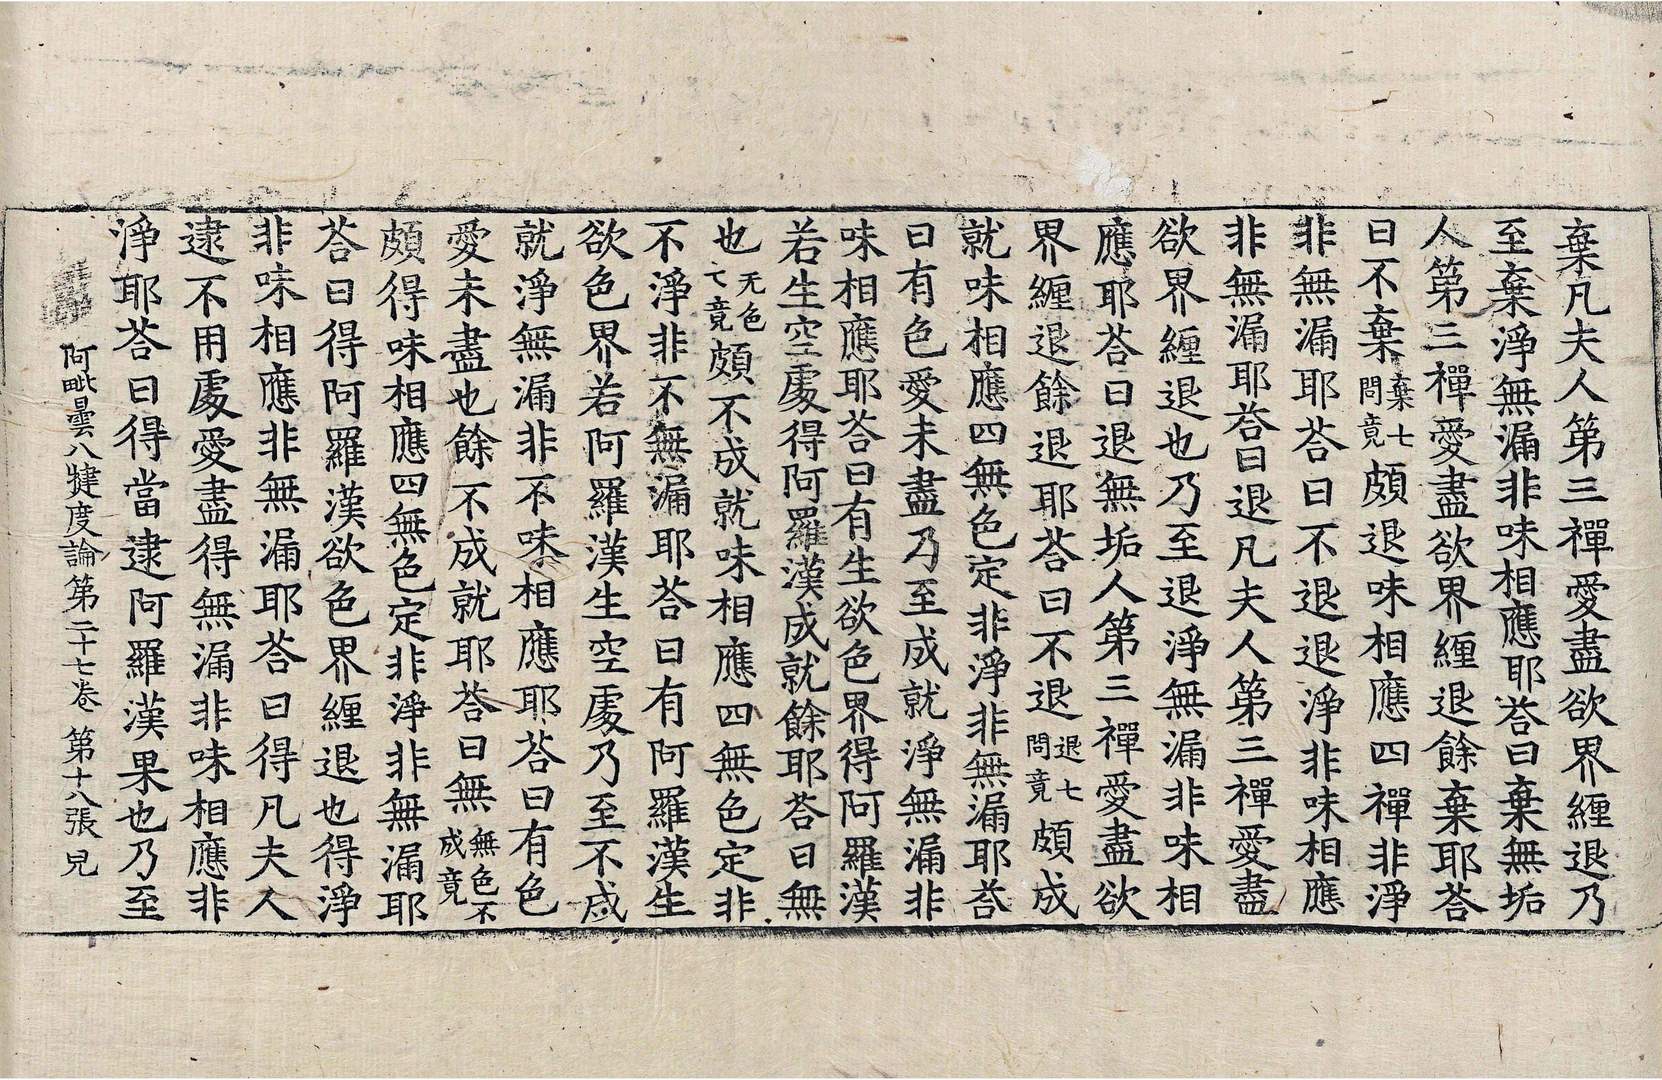 棄凡夫人第三禪愛盡欲界纏退乃
至棄淨無漏非味相應耶荅曰棄無垢
人第三禪愛盡欲界纏退餘棄耶荅
曰不棄棄七問竟頗退味相應四禪非淨
非無漏耶荅曰不退退淨非味相應
非無漏耶荅曰退凡夫人第三禪愛盡
欲界纏退也乃至退淨無漏非味相
應耶荅曰退無垢人第三禪愛盡欲
界纏退餘退耶荅曰不退退七問竟頗成
就味相應四無色定非淨非無漏耶荅
曰有色愛未盡乃至成就淨無漏非
味相應耶荅曰有生欲色界得阿羅漢
若生空處得阿羅漢成就餘耶荅曰無
也无色亡竟頗不成就味相應四無色定非
不淨非不無漏耶荅曰有阿羅漢生
欲色界若阿羅漢生空處乃至不成
就淨無漏非不味相應耶荅曰有色
愛未盡也餘不成就耶荅曰無無色不成竟
頗得味相應四無色定非淨非無漏耶
荅曰得阿羅漢欲色界纏退也得淨
非味相應非無漏耶荅曰得凡夫人
逮不用處愛盡得無漏非味相應非
淨耶荅曰得當逮阿羅漢果也乃至
阿毗曇八犍度論第二十七卷 第十八張 皃